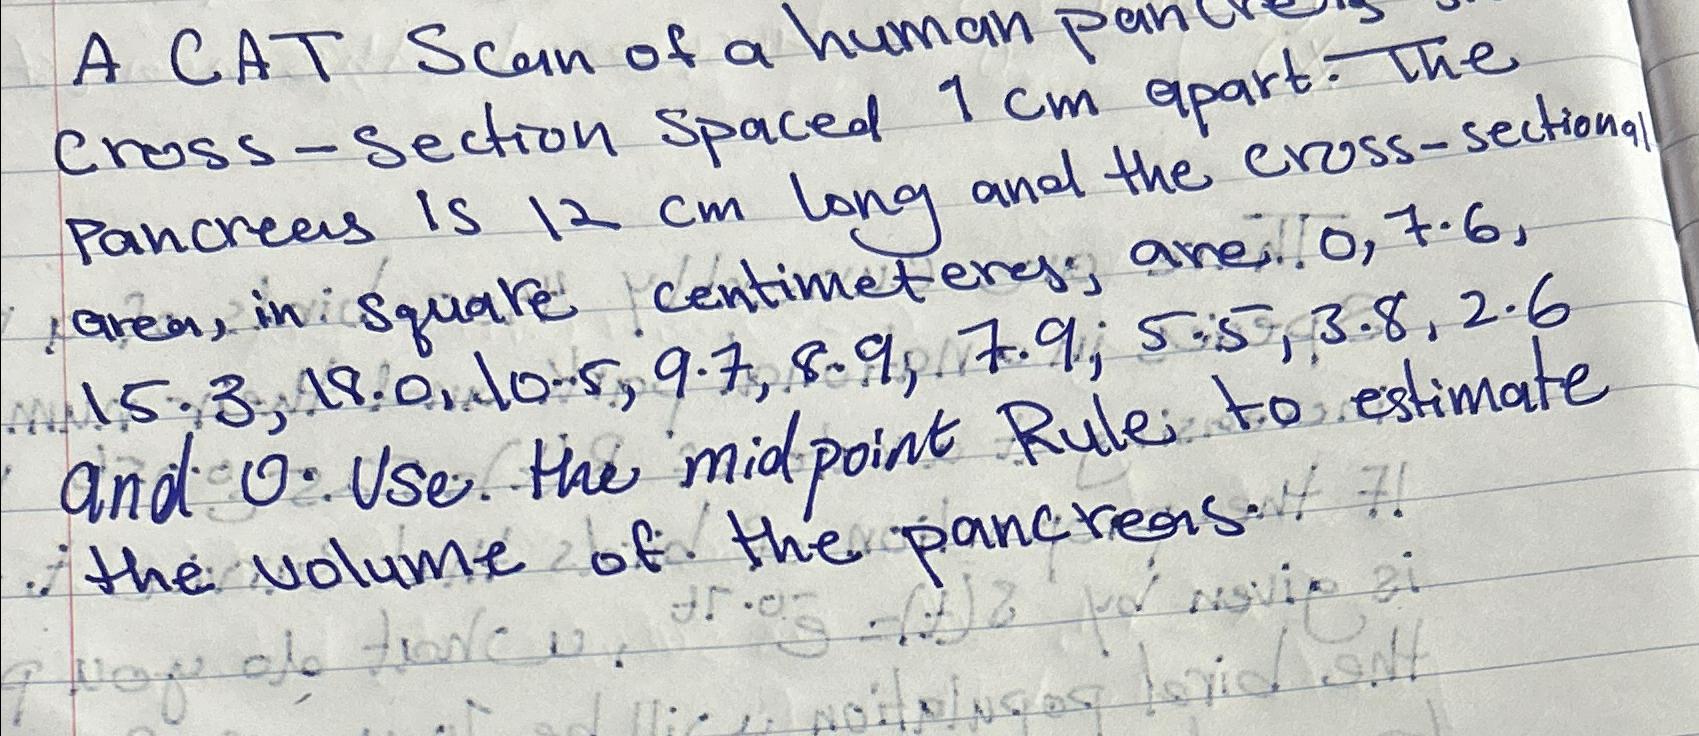 A CAT Scan of a human pancreas
cross-section spaced 1 cm apart. The
Pancreas is 12 cm long and the cross-sectional
area, in square centimeteres, are 0, 7.6,
15.3, 18.0, 10.5, 9.7, 8.9, 7.9, 5.5, 3.8, 2.6
and 0. Use the midpoint Rule to estimate
the volume of the pancreas.